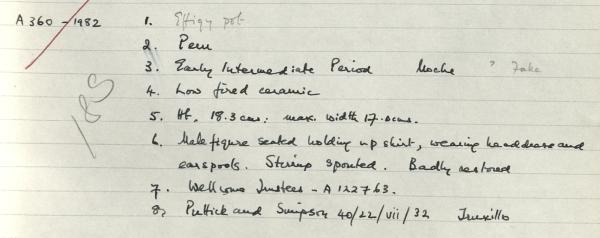 A 360 - 1982 1. Effigy pot
2. Peru
3. Early Intermediate Period Moche ? Fake
4. Low fired ceramic
5. Ht. 18.3 cms: max. width 17.0cms.
6. Male figure seated holding up shirt, wearing headdress and
earspools. Stirrup spouted. Badly restored
7. Wellcome Trustees - A 122763.
8, Puttick and Simpson 40/22/vii/32 Truxillo
185